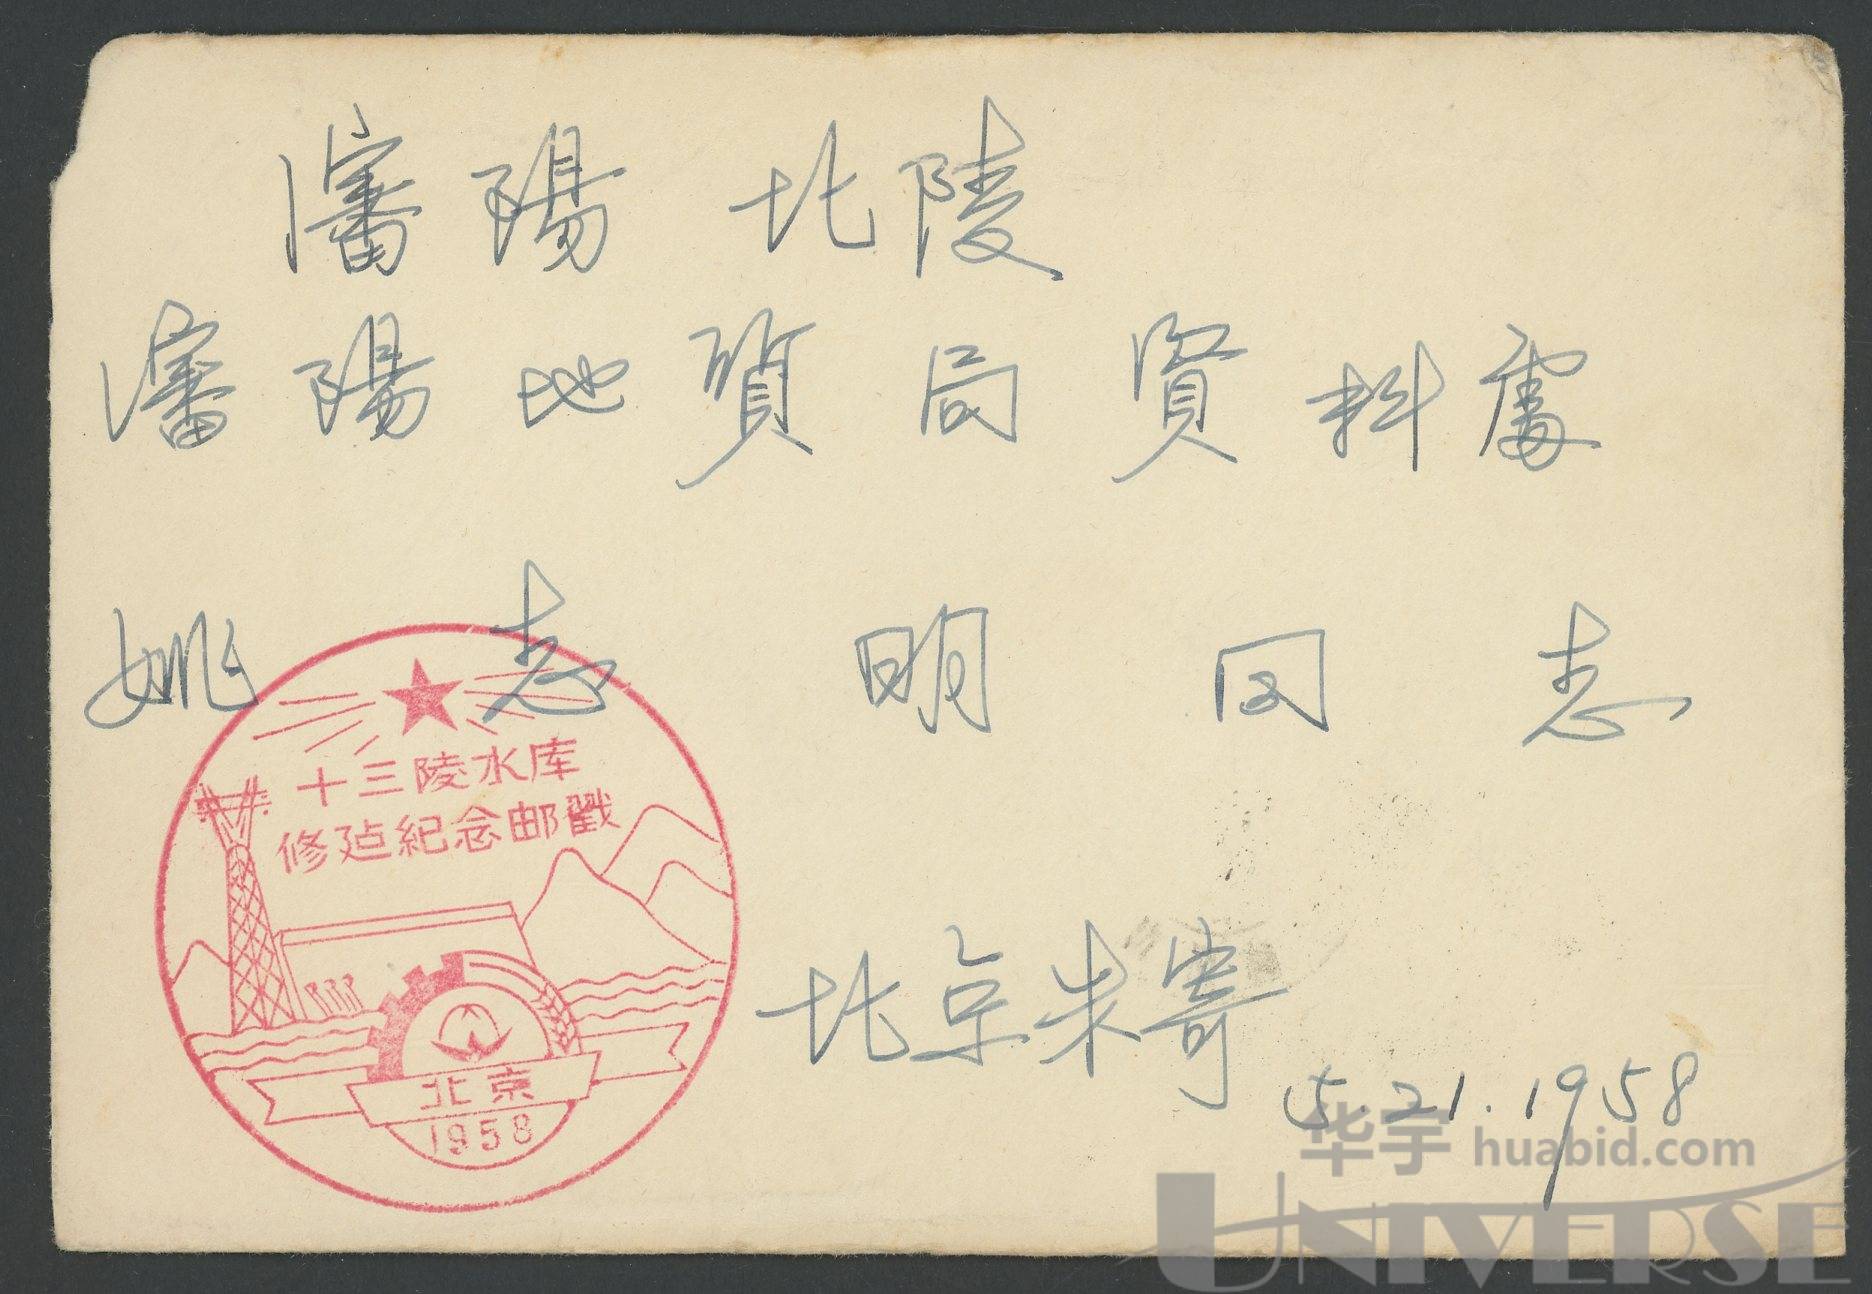 瀋陽 北陵
瀋陽地質局資料處
姚志明同志
十三陵水库
修建紀念邮戳
北京
1958
北京朱寄
5.21.1958
华宇 huabid.com
UNIVERSE